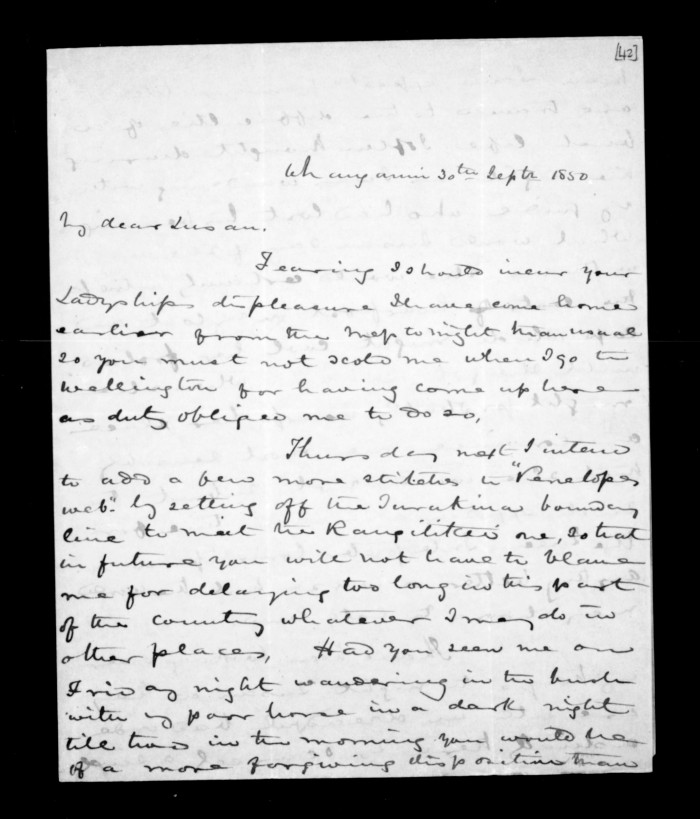 [42]
Whanganui 30th Septr 1850
My dear Susan.
Fearing I should incur your
Ladyships displeasure I have come home
earlier from the mess tonight than usual
so you must not scold me when I go to
Wellington for having come up here
as duty obliged me to do so,
Thursday next I intend
to add a few more stitches to "Penelopes
web" by setting off the Turakina boundary
line to meet the Rangitikei one, so that
in future you will not have to blame
me for delaying too long in this part
of the country whatever I may do in
other places, Had you seen me on
Friday night wandering in the bush
with my poor horse in a dark night
till two in the morning you would be
of a more forgiving disposition than